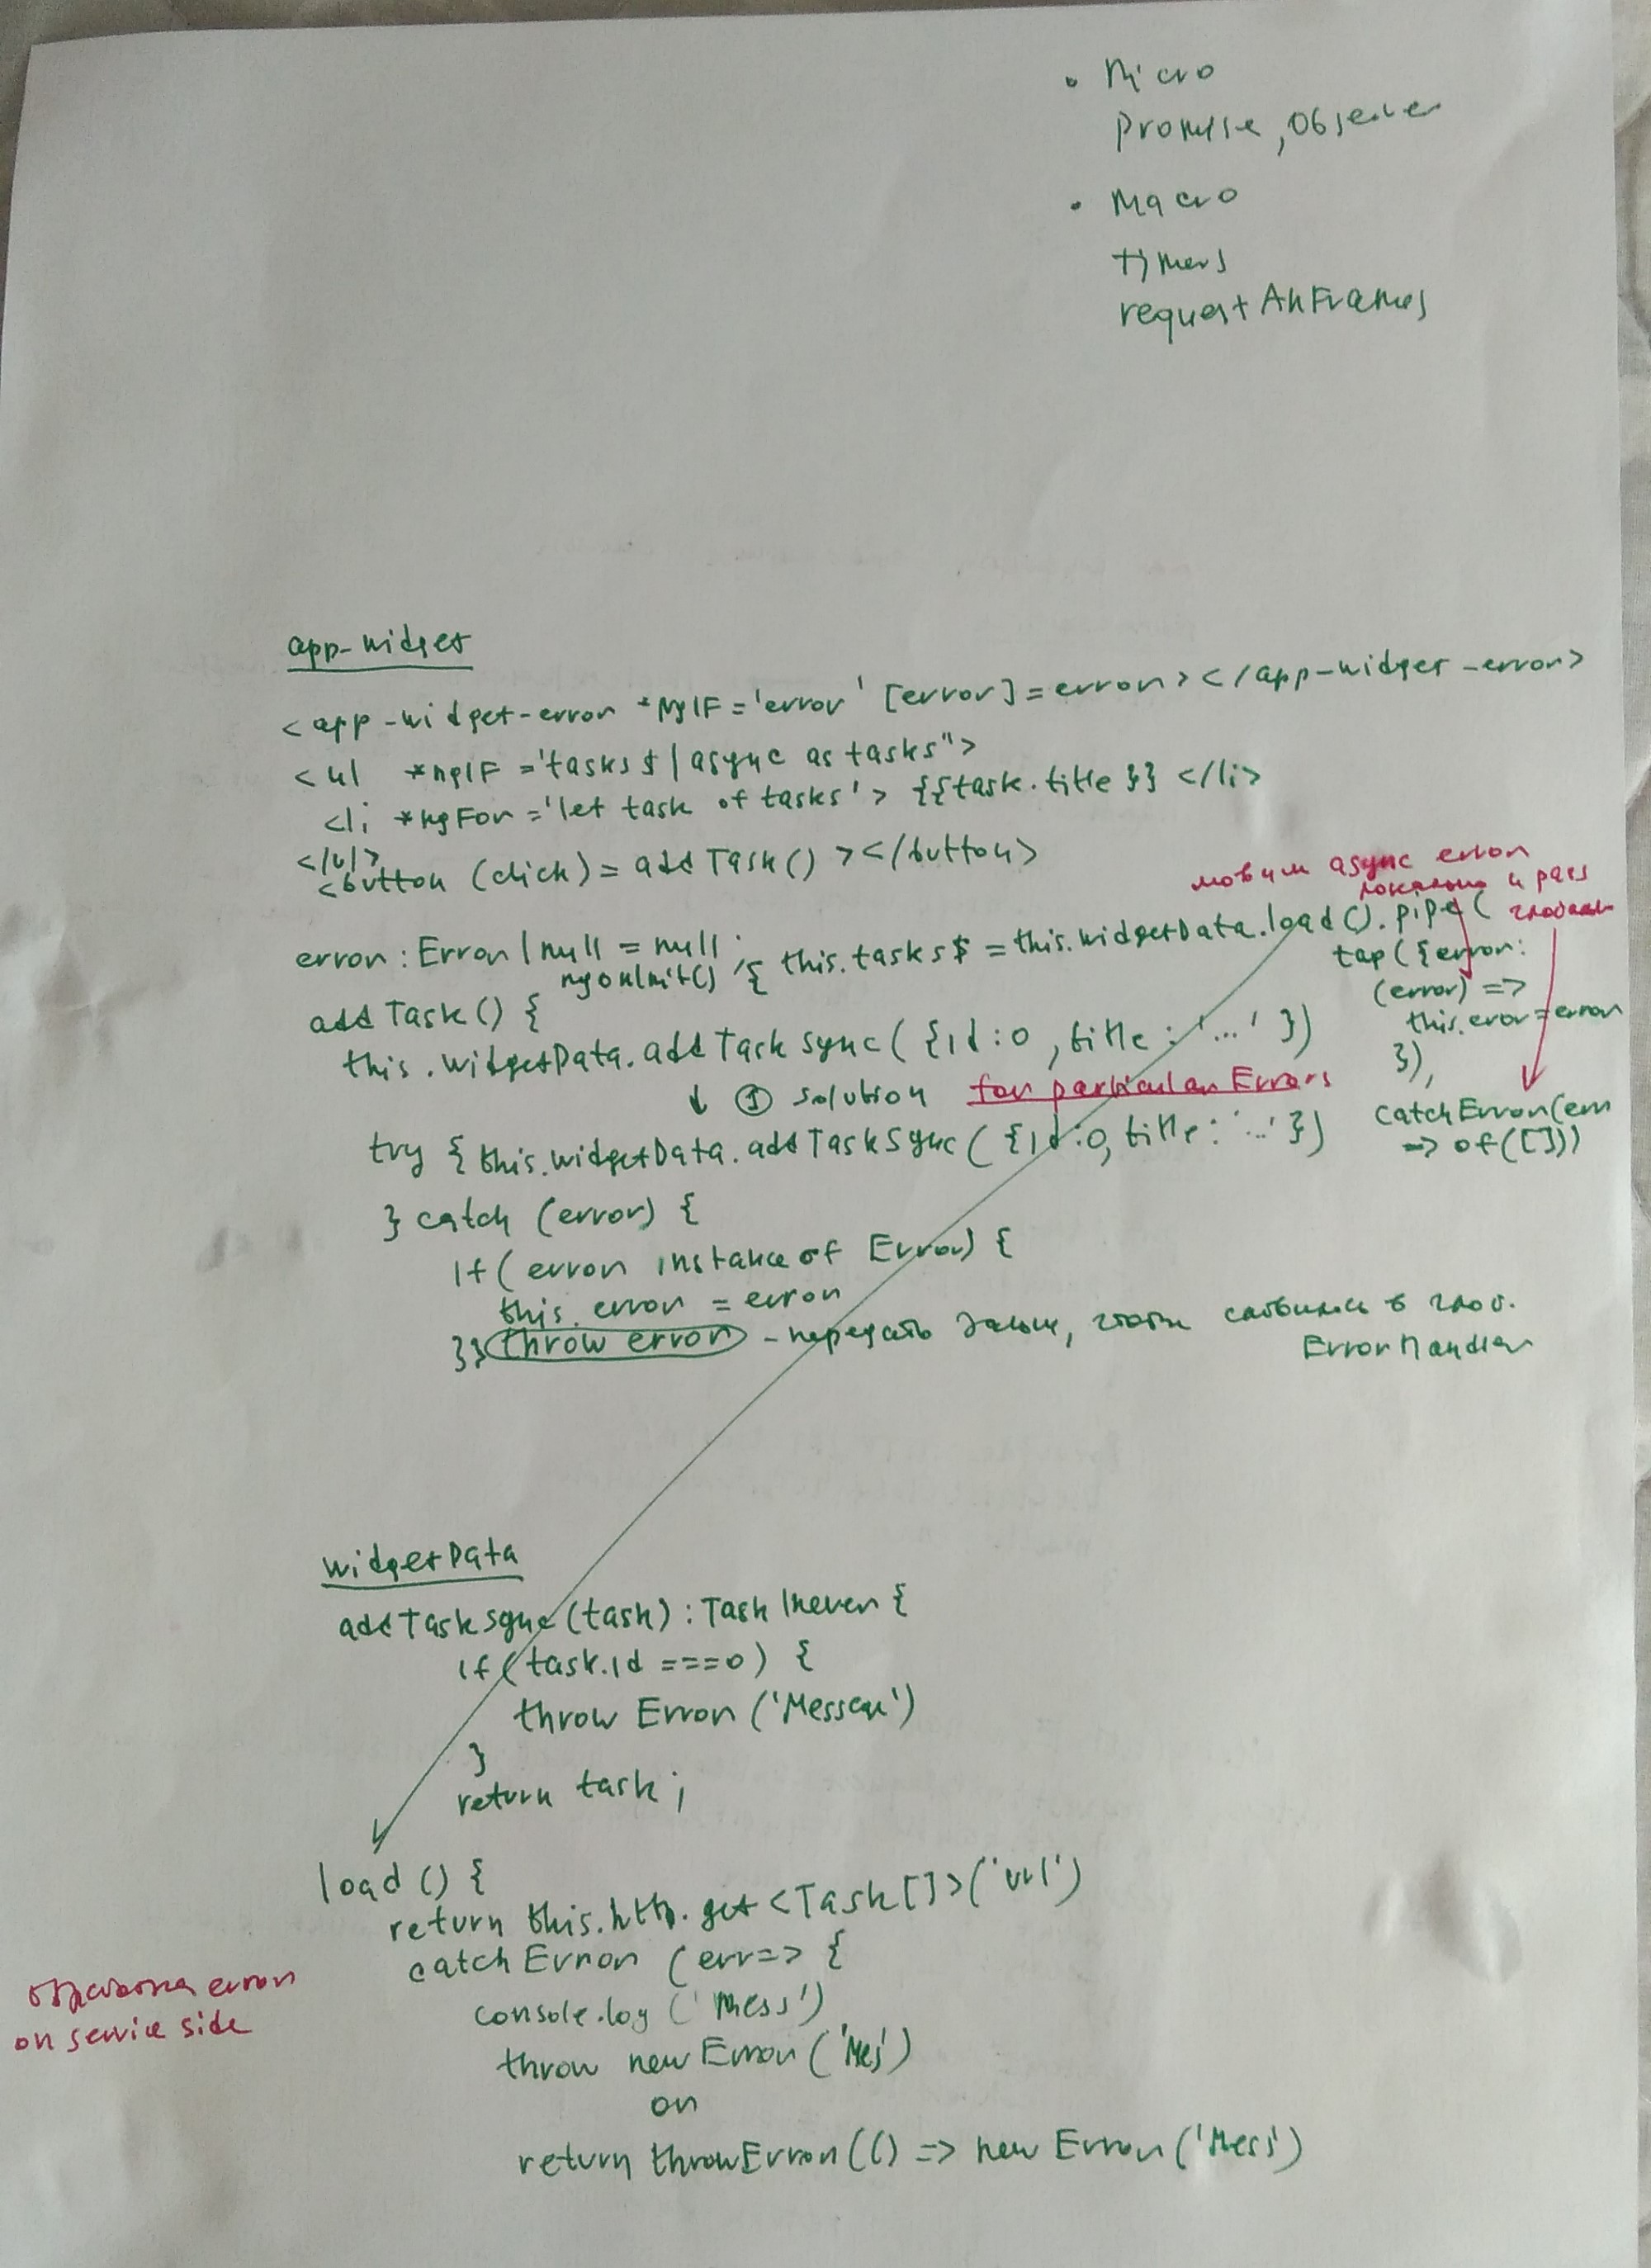 • Micro
Promise, Observer
• Macro
timers
requestAnFrames
app-widget
<app-widget-error *NgIF='error' [error]=error></app-widget-error>
<ul *ngIF='tasks$|async as tasks">
<li *ngFor='let task of tasks'> {{task.title}} </li>
</ul>
<button (click)=addTask()></button>
ловим async error
локально и pass
error:Error|null = null;
ngOnInit() { this.tasks$ = this.widgetData.load().pipe(
tap({error:
(error) =>
this.eror=error
}),
catchError(err
=> of([]))
addTask() {
this.widgetData.addTaskSync({id:0, title:'...'})
↓ ① solution for particular Errors
try {this.widgetData.addTaskSync({id:0, title:'...'})
} catch (error) {
if(error instance of Error) {
this.error = error
}} throw error - передать дальше, чтобы в глоб.
ErrorHandler
widgetData
addTaskSync(task):Task|never {
if(task.id ===0) {
throw Error('Message')
}
return task;
load() {
return this.http.get<Task[]>('url')
catchError (err=> {
console.log('Mess')
throw new Error('Mes')
or
return throwError(() => new Error('Mess')
обработка error
on service side